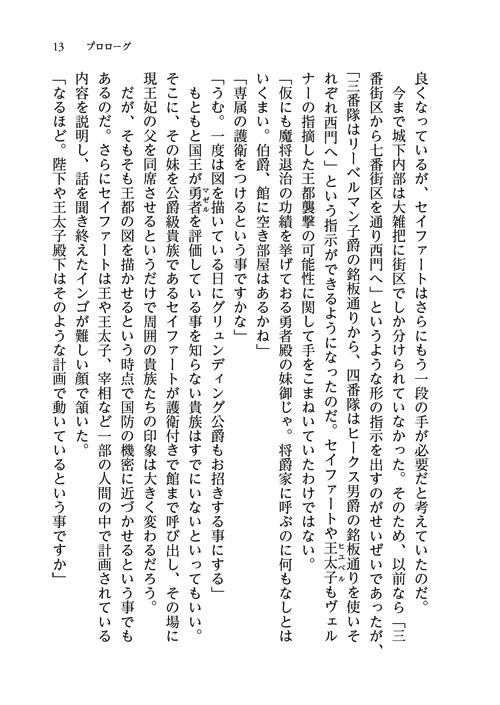 13　プロローグ
良くなっているが、セイファートはさらにもう一段の手が必要だと考えていたのだ。
　今まで城下内部は大雑把に街区でしか分けられていなかった。そのため、以前なら「三
番街区から七番街区を通り西門へ」というような形の指示を出すのがせいぜいであったが、
「三番隊はリーベルマン子爵の銘板通りから、四番隊はヒークス男爵の銘板通りを使いそ
れぞれ西門へ」という指示ができるようになったのだ。セイファートや王太子ヒュベルもヴェル
ナーの指摘した王都襲撃の可能性に関して手をこまねいていたわけではない。
「仮にも魔将退治の功績を挙げておる勇者殿の妹御じゃ。将爵家に呼ぶのに何もなしとは
いくまい。伯爵、館に空き部屋はあるかね」
「専属の護衛をつけるという事ですかな」
「うむ。一度は図を描いている日にグリュンディング公爵もお招きする事にする」
　もともと国王が勇者マゼルを評価している事を知らない貴族はすでにいないといってもいい。
そこに、その妹を公爵級貴族であるセイファートが護衛付きで館まで呼び出し、その場に
現王妃の父を同席させるというだけで周囲の貴族たちの印象は大きく変わるだろう。
　だが、そもそも王都の図を描かせるという時点で国防の機密に近づかせるという事でも
あるのだ。さらにセイファートは王や王太子、宰相など一部の人間の中で計画されている
内容を説明し、話を聞き終えたインゴが難しい顔で頷いた。
「なるほど。陛下や王太子殿下はそのような計画で動いているという事ですか」